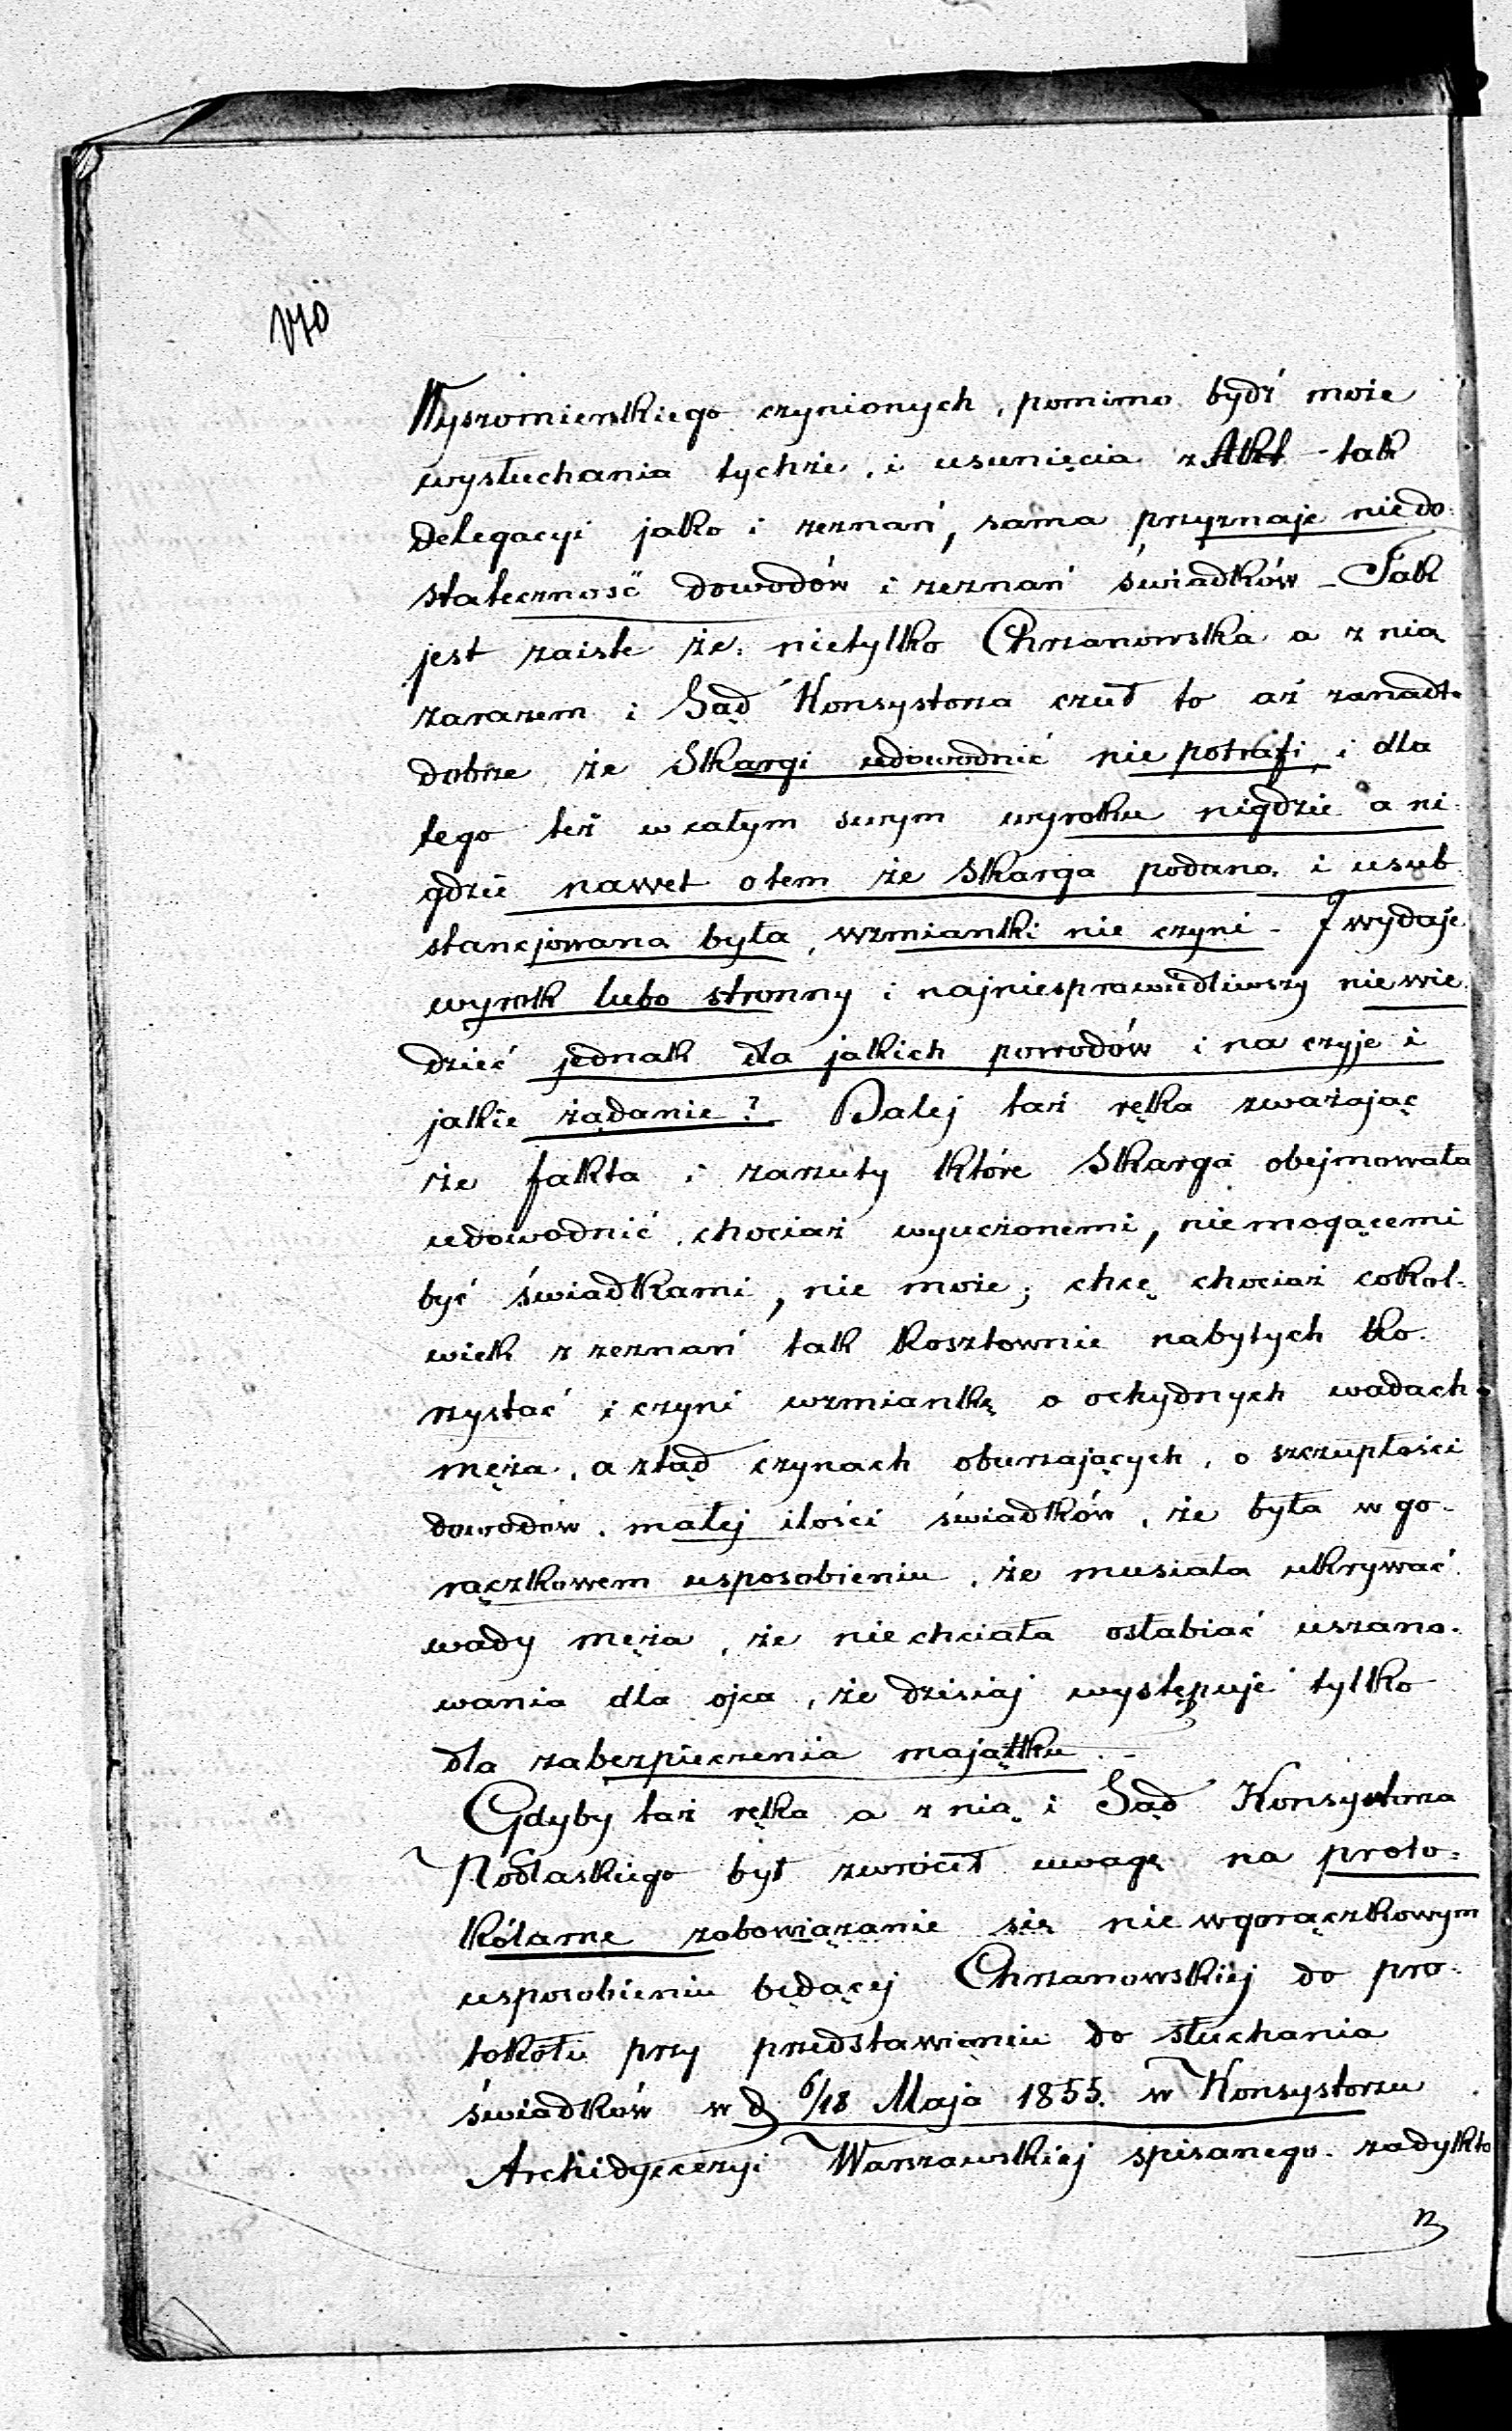 Wyszomierskiego czynionych, pomimo bydź może
wysłuchania tychże, i usunięcia z Akt - tak
Delegacyi jako i zeznań, sama przyznaje niedo-
stateczność dowodów i zeznań świadków - Tak
jest zaiste że nietylko Chrzanowska a z nią
zarazem i Sąd Konsystorza czuł to aż zanadto
dobrze że Skargi udowodnić nie potrafi, i dla
tego też w całym swym wyroku nigdzie a ni-
gdzie nawet o tem że Skarga podana i usub
stancjowana była, wzmianki nie czyni - I wydaje
wyrok lubo stronny i najniesprawiedliwszy niewie
dzieć jednak dla jakich powodów i na czyje i
jakie żądanie? Dalej taż ręka zważając
że fakta i zarzuty które Skarga obejmowała
udowodnić, chociaż wyuczonemi, niemogącemi
być świadkami, nie może; chcę chociaż cokol-
wiek z zeznań tak kosztownie nabytych ko-
rzystać i czyni wzmiankę o ochydnych wadach
męża, a ztąd czynach oburzających, o szczupłości
dowodów, małej ilości świadków, że była w go-
rączkowem usposobieniu, że musiała ukrywać
wady męża, że niechciała osłabiać uszano-
wania dla ojca, że dzisiaj występuje tylko
dla zabezpieczenia majątku. -
Gdyby taż ręka a z nią i Sąd Konsystorza
Podlaskiego był zwrócił uwagę na proto-
kólarne zobowiązanie się nie wgorączkowym
usposobieniu będącej Chrzanowskiej do pro-
tokółu przy przedstawieniu do słuchania
świadków w d 6/18 Maja 1855. w Konsystorzu
Archidyecezyi Warszawskiej spisanego. zadykto